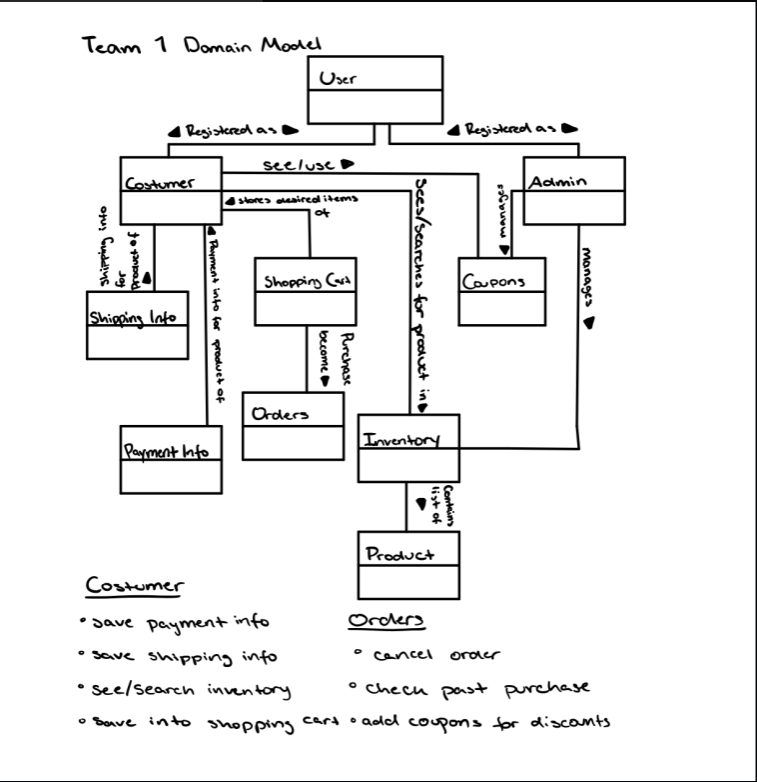 Team 1 Domain Model
User
◀ Registered as ▶
◀ Registered as ▶
see/use ▶
Costumer
Admin
◀ stores desired items
of
Sees/Searches for product in ▶
manages ▶
manages ▶
Shipping info
for
Product of ▶
◀ Payment info for product of
Shopping Cart
Coupons
Shipping Info
Purchase
become ▶
Orders
Inventory
Payment Info
Contains
list of
▶
Product
Costumer
° save payment info
° save shipping info
° see/search inventory
° save into shopping cart
Orders
° cancel order
° check past purchase
° add coupons for discants